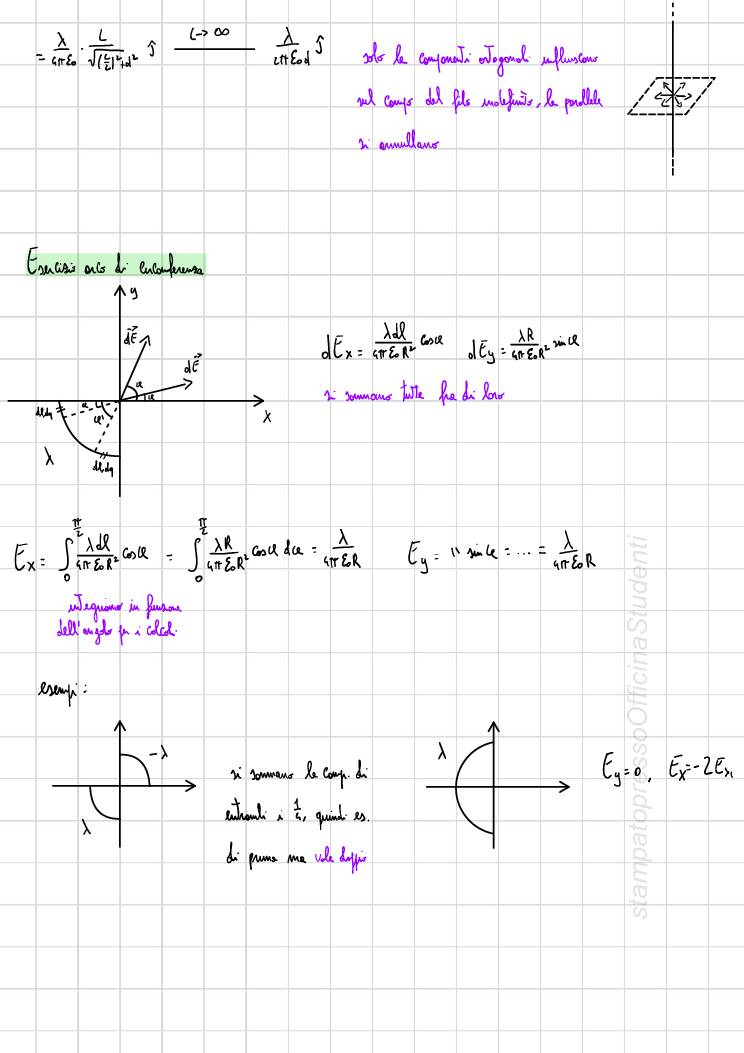 = λ/4πε₀ · L/√((L/2)²+d²) ĵ  L→∞  λ/2πε₀d ĵ
solo le componenti ortogonali influiscono
nel campo del filo indefinito, le parallele
si annullano
Esercizio arco di circonferenza
y
dE⃗
dE⃗
α
x
λ
dEx = λdl/4πε₀R² cosα  dEy = λR/4πε₀R² sinα
si sommano tutte fra di loro
Ex = ∫₀^π/2 λdl/4πε₀R² cosα = ∫₀^π/2 λR/4πε₀R² cosα dα = λ/4πε₀R  Ey = " sinα = ... = λ/4πε₀R
integriamo in funzione
dell'angolo per i calcoli
esempi:
-λ
λ
si sommano le comp. di
entrambi i 1/4, quindi es.
di prima ma vale doppio
λ
Ey=0, Ex=-2Ex₁
stampatopressoOfficinaStudenti